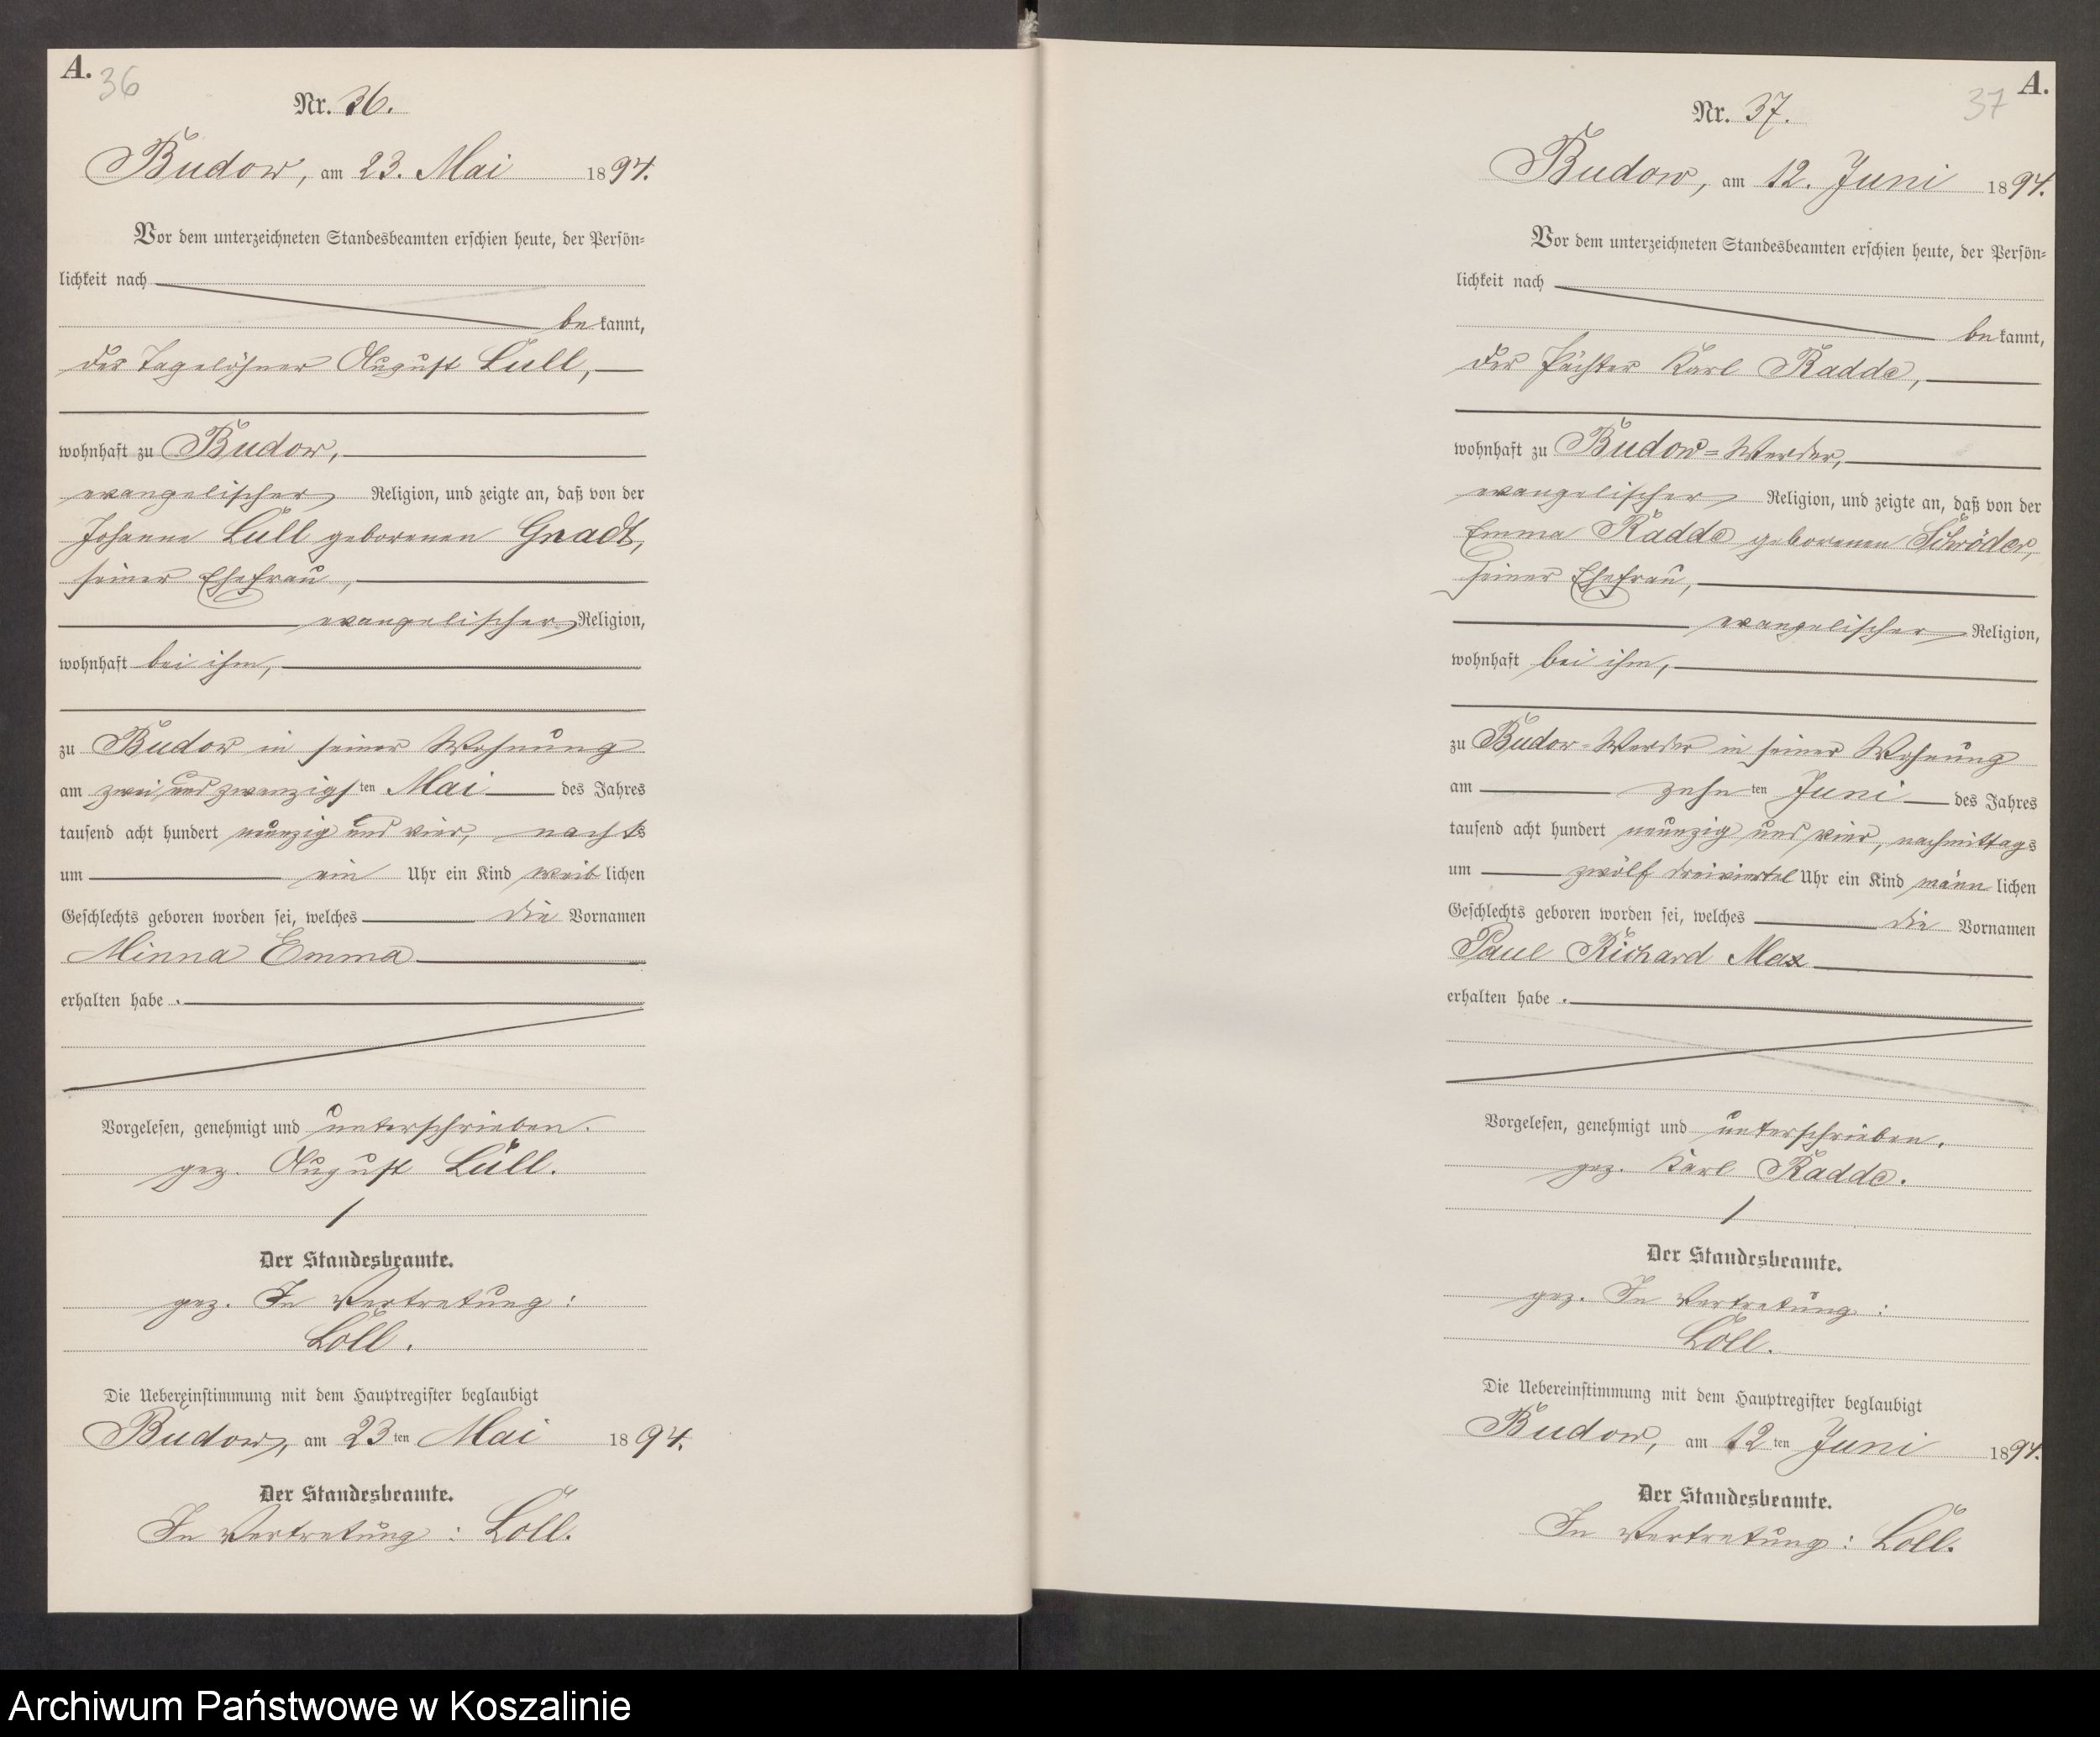 A.
36
Nr. 36.
Budow, am 23. Mai 1894.
Vor dem unterzeichneten Standesbeamten erschien heute, der Persön=
lichkeit nach
be kannt,
der Tagelöhner August Lüll,
wohnhaft zu Budow,
evangelischer Religion, und zeigte an, daß von der
Johanne Lüll geborenen Gnadt,
seiner Ehefrau,
evangelischer Religion,
wohnhaft bei ihm,
zu Budow in seiner Wohnung
am zwei und zwanzigsten Mai des Jahres
tausend acht hundert neunzig und vier, nachts
um ein Uhr ein Kind weib lichen
Geschlechts geboren worden sei, welches die Vornamen
Minna Emma
erhalten habe .
Vorgelesen, genehmigt und unterschrieben.
gez. August Lüll.
Der Standesbeamte.
gez. In Vertretung:
Löll.
Die Uebereinstimmung mit dem Hauptregister beglaubigt
Budow, am 23ten Mai 1894.
Der Standesbeamte.
In Vertretung: Löll.
A.
37
Nr. 37.
Budow, am 12. Juni 1894.
Vor dem unterzeichneten Standesbeamten erschien heute, der Persön=
lichkeit nach
be kannt,
der Pächter Karl Radde,
wohnhaft zu Budow=Werder,
evangelischer Religion, und zeigte an, daß von der
Emma Radde geborenen Schröder,
seiner Ehefrau,
evangelischer Religion,
wohnhaft bei ihm,
zu Budow=Werder in seiner Wohnung
am zehnten Juni des Jahres
tausend acht hundert neunzig und vier, nachmittags
um zwölf dreiviertel Uhr ein Kind männ lichen
Geschlechts geboren worden sei, welches die Vornamen
Paul Richard Max
erhalten habe .
Vorgelesen, genehmigt und unterschrieben.
gez. Karl Radde.
Der Standesbeamte.
gez. In Vertretung:
Löll.
Die Uebereinstimmung mit dem Hauptregister beglaubigt
Budow, am 12ten Juni 1894.
Der Standesbeamte.
In Vertretung: Löll.
Archiwum Państwowe w Koszalinie